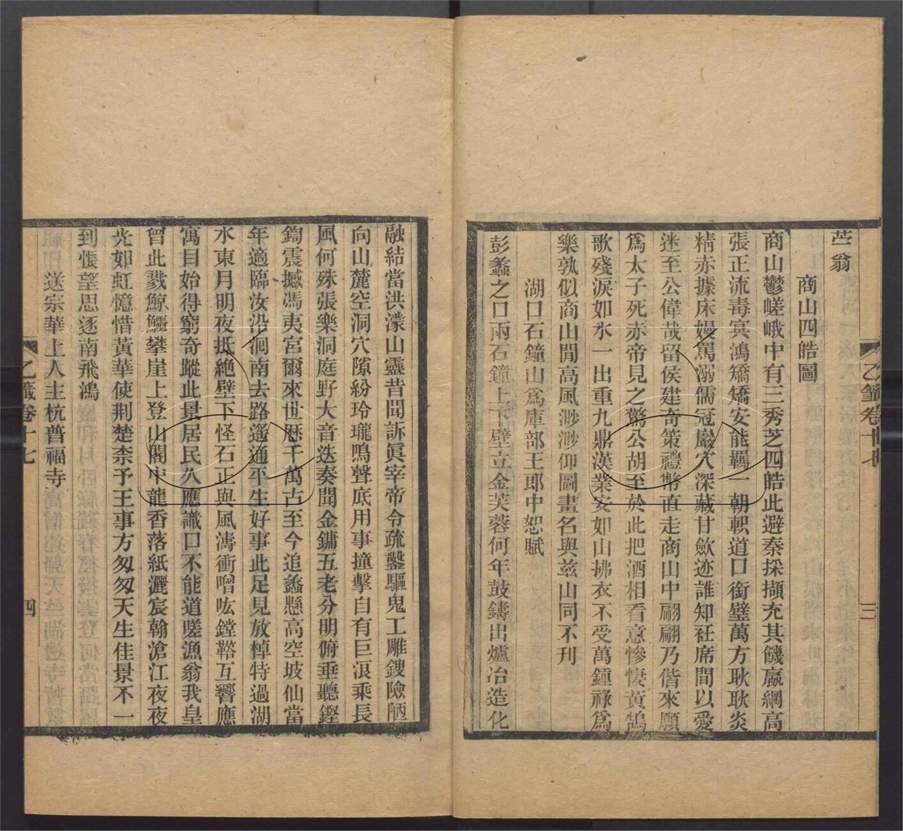 苎翁
商山四皓圖
商山鬱嵯峨中有三秀芝四皓此避秦採擷充其饑嬴網高
張正流毒寘鴻矯矯安能羈一朝軹道口銜璧萬方耿耿炎
精赤據床嫚罵溺儒冠巖穴深藏甘歛迹誰知衽席間以愛
迷至公偉哉留侯建奇策禮幣直走商山中翩翩乃偕來願
爲太子死赤帝見之驚公胡至於此把酒相看意慘悽黃鵠
歌殘淚如水一出重九鼎漢業安如山拂衣不受萬鍾祿爲
樂孰似商山閒高風渺渺仰圖畫名與兹山同不刋
湖口石鐘山爲庫部王郎中恕賦
彭蠡之口兩石鐘上下壁立金芙蓉何年鼓鑄出爐冶造化
乙籤卷十七
三
融結當洪濛山靈昔聞訴眞宰帝令疏鑿驅鬼工雕鎪險陋
向山麓空洞穴隙紛玲瓏鳴聲底用事撞擊自有巨浪乘長
風何殊張樂洞庭野大音迭奏間金鏞五老分明俯垂聽鏗
鍧震撼馮夷宮爾來世歷千萬古至今追蠡懸高空坡仙當
年適臨汝沿洄南去路遙通平生好事此足見放棹特過湖
水東月明夜抵絕壁下怪石正與風濤衝噌吰鏜鞳互響應
寓目始得窮奇蹤此景居民久應識口不能道嗟漁翁我皇
曾此戮鯨鱷攀崖上登山閣中龍香落紙灑宸翰滄江夜夜
光如虹憶惜黃華使荆楚柰予王事方匆匆天生佳景不一
到悵望思逐南飛鴻
送宗華上人主杭普福寺
乙籤卷十七
四